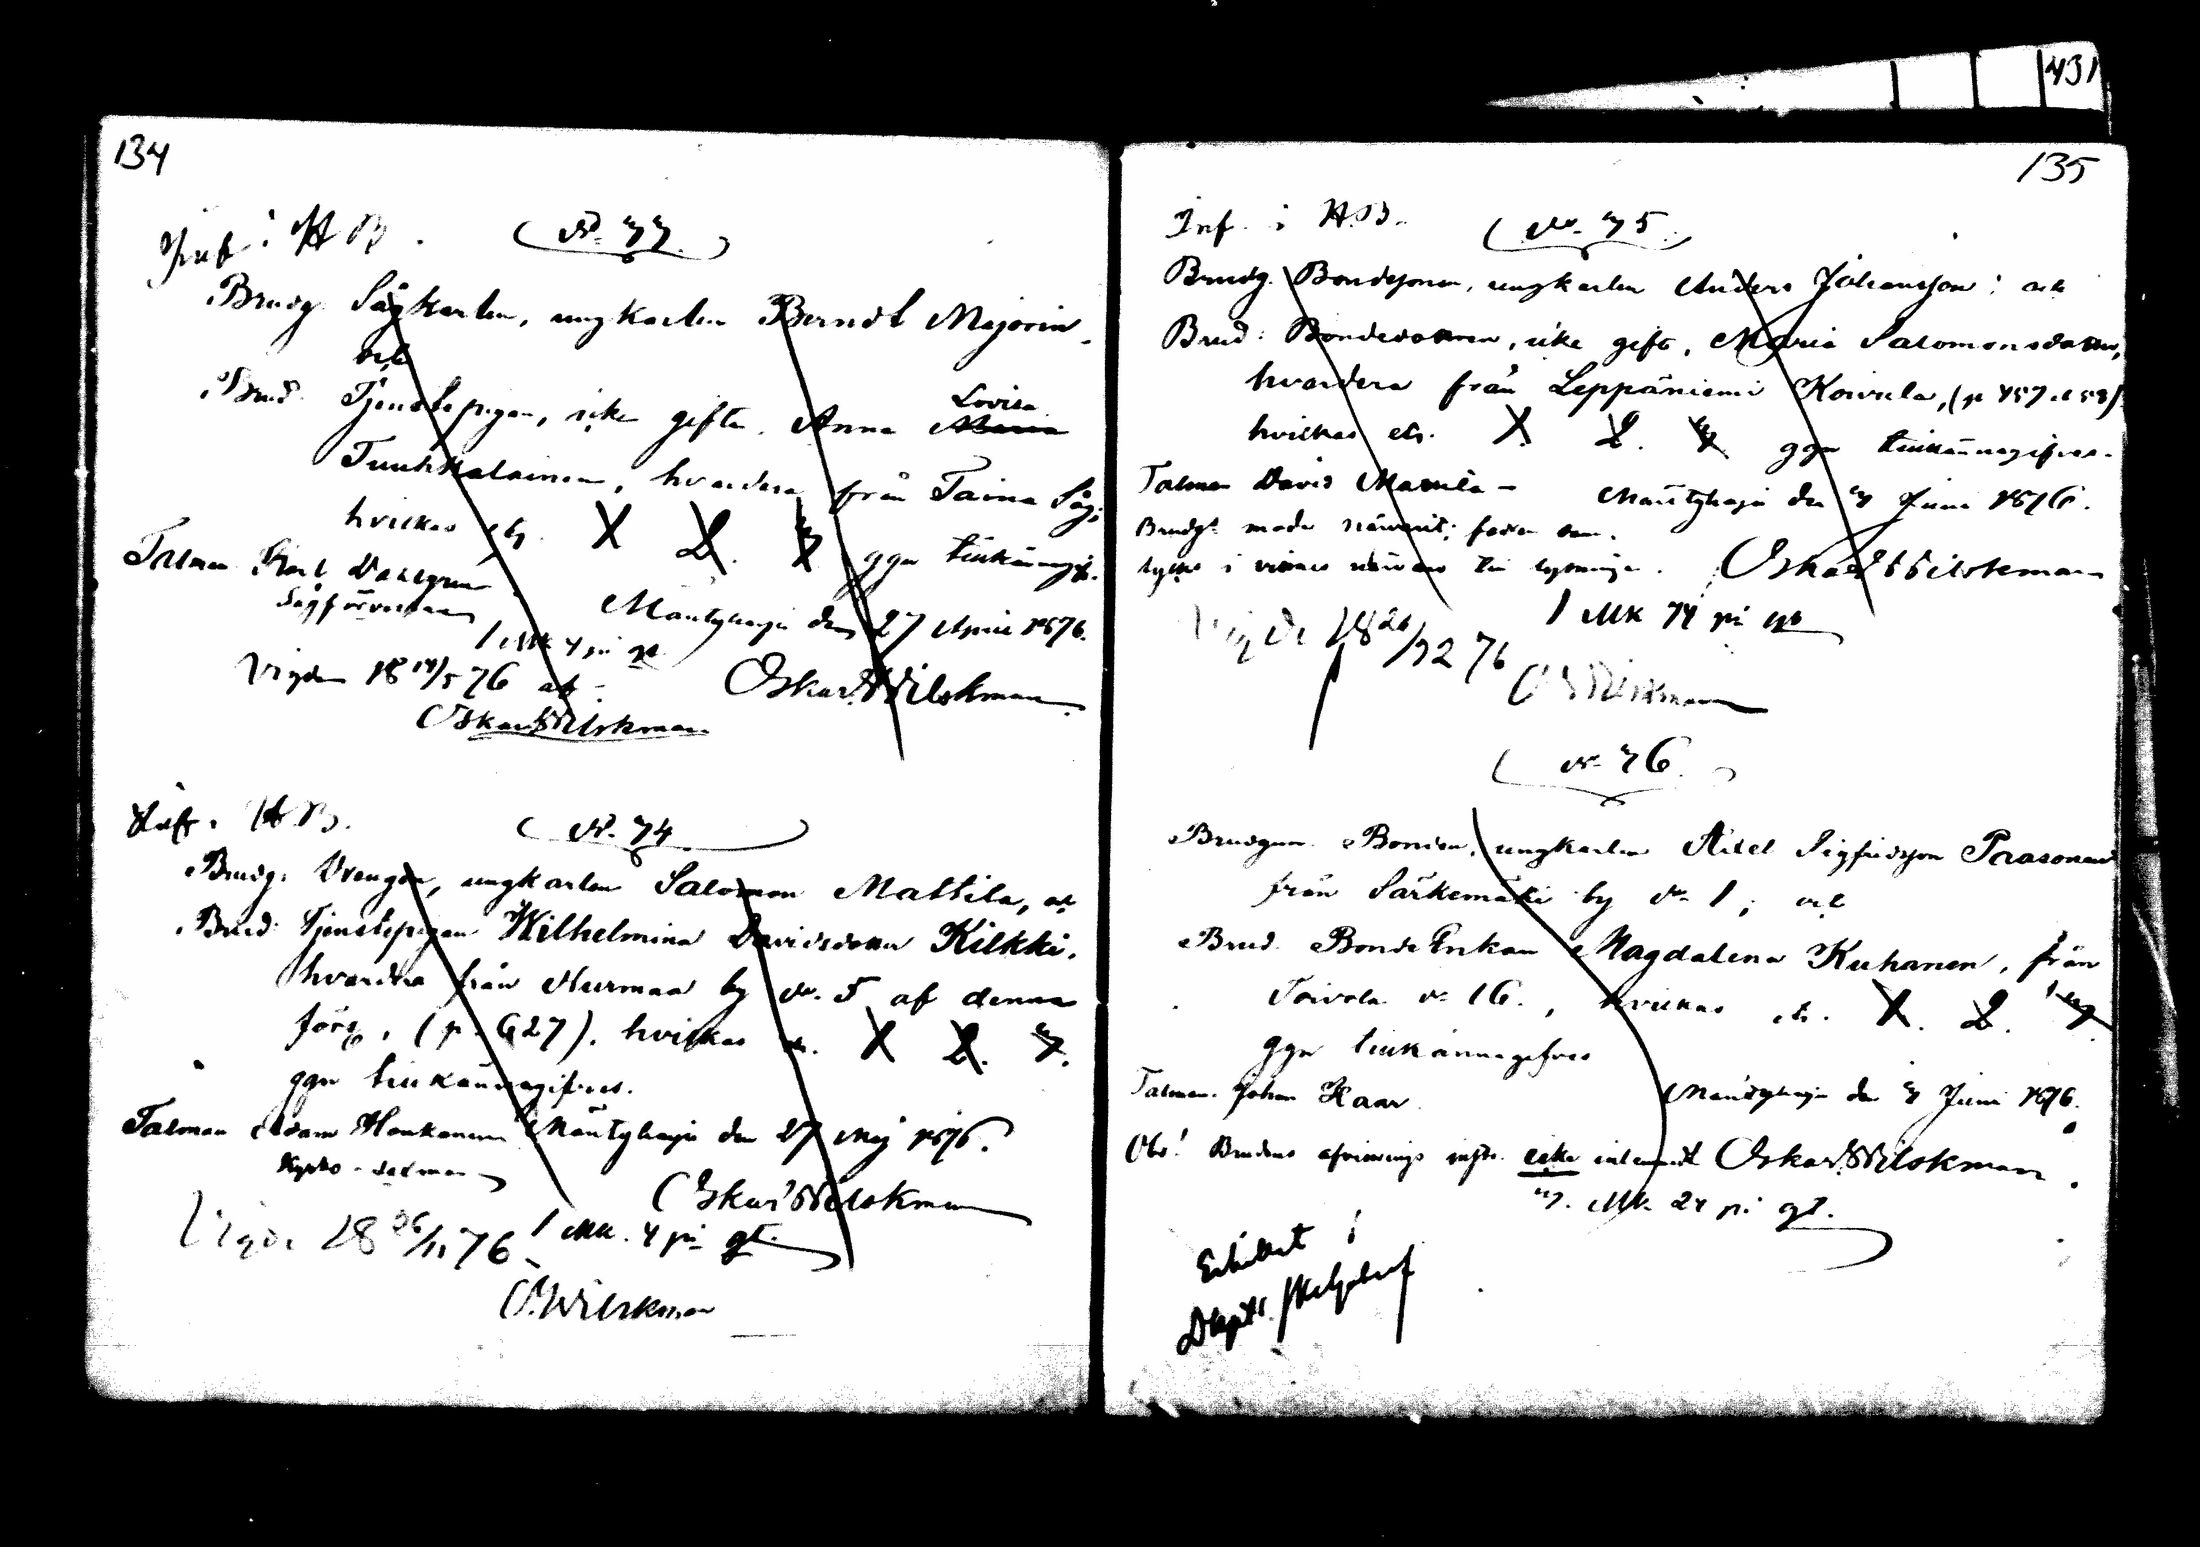 431
134
Inf. i H B.
N:o 73.
Brudg. Sågkarlen, ungkarlen Berndt Majorin,
och
Brud. Tjenstepigan, icke gifta, Anna Lovisa ~~Maria~~
Tuuhkalainen, hvardera från Taina Såg;
hvilkas etc. 1. 2. 3. ggn tillkännagifs.
Talman Karl Dahlgren
Sågförvaltare
Mäntyharju den 27 April 1876.
1 Mk 4 pi gt.
Oskar Wilskman
Vigde 18 14/5 76 af
Oskar Wilskman
Inf. i H.B.
N:o 74.
Brudg. Drengen, ungkarlen Salomon Mattila, och
Brud. Tjenstepigan Wilhelmina Davidsdotter Kilkki,
hvardera från Nurmaa by N:o 5 af denna
förs., (p. 627), hvilkas etc. 1. 2. 3.
ggn tillkännagifves.
Talman Adam Honkanen Mäntyharju den 27 Maj 1876.
Kyrko-
Oskar Wilskman
1 Mk. 4 pi gt.
Vigde 18 26/11 76
O. Wilskman
135
Inf. i H.B.
N:o 75.
Brudg. Bondsonen, ungkarlen Anders Johansson; och
Brud: Bondedottren, icke gift, Maria Salomonsdotter,
hvardera från Leppäniemi Koivula, (p 457 et 58)
hvilkas etc. 1. 2. 3. ggn tillkännagifves.
Talman David Manila - Mäntyharju den 3 Juni 1876.
Brudgs moder närvarit; fader
i vittnes närvaro till lysningen. Oskar Wilskman
1 Mk 74 pi gt
Vigde 18 26/12 76
O Wilskman
N:o 76.
Brudgum. Bonden, ungkarlen Adel Sigfridsson Parasonen
från Särkemäki by N:o 1; och
Brud. Bonde Enkan Magdalena Kuhanen, från
Toivola N:o 16., hvilkas etc. 1. 2. 3.
ggn tillkännagifves
Talman. Johan Haar. Mäntyharju den 3 Juni 1876.
Obs! Brudens afvittrings icke inlemnadt Oskar Wilskman
3. Mk. 24 pi gt.